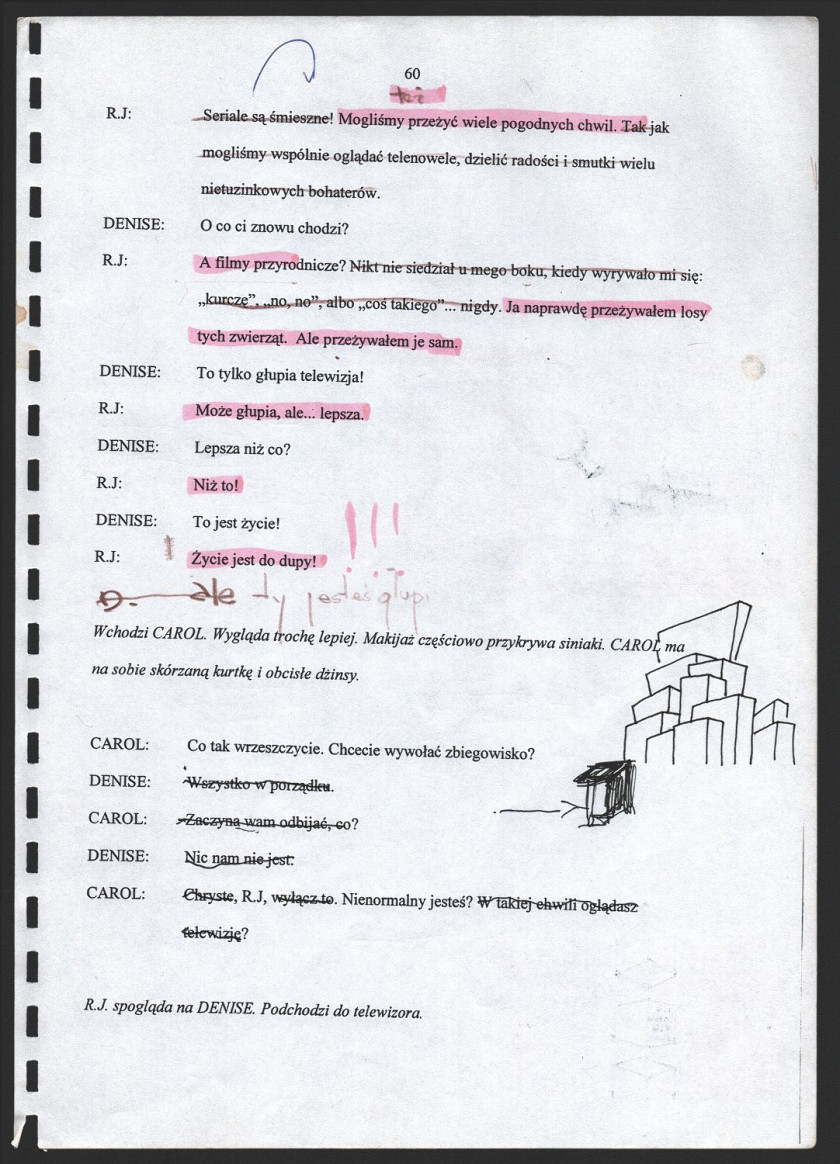 60
też
R.J: Seriale są śmieszne! Mogliśmy przeżyć wiele pogodnych chwil. Tak jak
mogliśmy wspólnie oglądać telenowele, dzielić radości i smutki wielu
nietuzinkowych bohaterów.
DENISE: O co ci znowu chodzi?
R.J: A filmy przyrodnicze? Nikt nie siedział u mego boku, kiedy wyrywało mi się:
„kurczę”, „no, no”, albo „coś takiego”... nigdy. Ja naprawdę przeżywałem losy
tych zwierząt. Ale przeżywałem je sam.
DENISE: To tylko głupia telewizja!
R.J: Może głupia, ale... lepsza.
DENISE: Lepsza niż co?
R.J: Niż to!
DENISE: To jest życie!
R.J: Życie jest do dupy! !!!
D. ale ty jesteś głupi
Wchodzi CAROL. Wygląda trochę lepiej. Makijaż częściowo przykrywa siniaki. CAROL ma
na sobie skórzaną kurtkę i obcisłe dżinsy.
CAROL: Co tak wrzeszczycie. Chcecie wywołać zbiegowisko?
DENISE: Wszystko w porządku.
CAROL: Zaczyna wam odbijać, co?
DENISE: Nic nam nie jest.
CAROL: Chryste, R.J, wyłącz to. Nienormalny jesteś? W takiej chwili oglądasz
telewizję?
R.J. spogląda na DENISE. Podchodzi do telewizora.